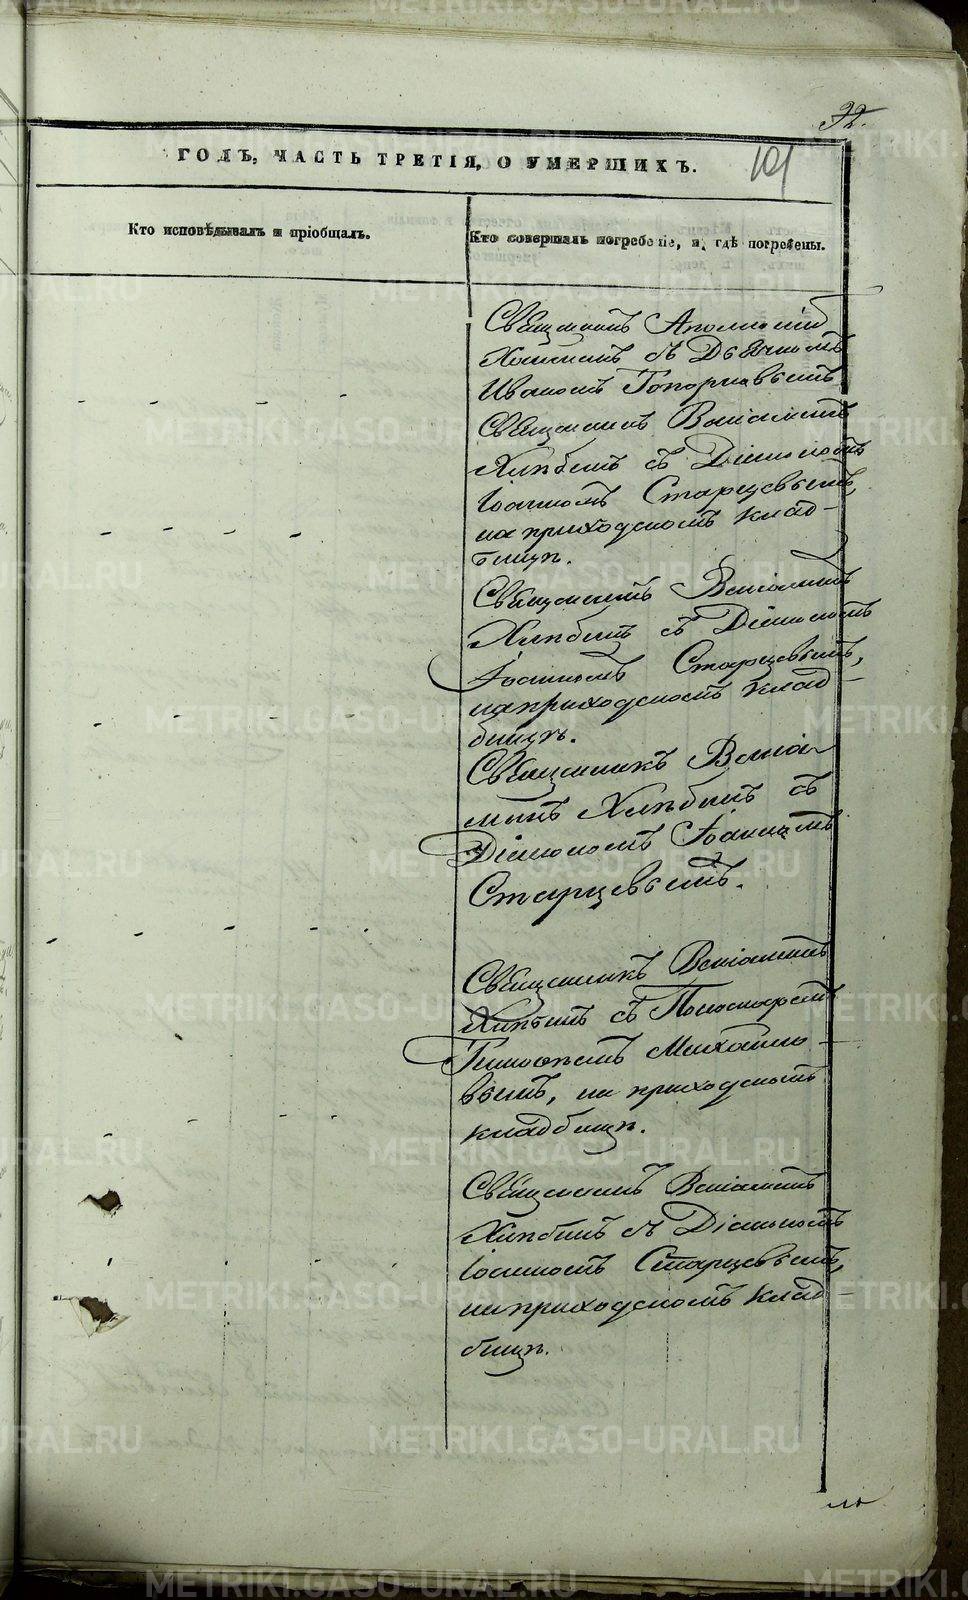 32.
ГОДЪ, ЧАСТЬ ТРЕТІЯ, О УМЕРШИХЪ.
101
Кто исповѣдывалъ и пріобщалъ.
Кто совершалъ погребеніе, и гдѣ погребены.
Священникъ
съ Дьячкомъ
Иваномъ Топорковымъ
Священникъ Веніаминъ
Хлѣбинъ съ Діакономъ
Іоанномъ Старцевымъ,
на приходскомъ клад-
бищѣ.
Священникъ Веніаминъ
Хлѣбинъ съ Діакономъ
Іоанномъ Старцевымъ,
на приходскомъ клад-
бищѣ.
Священникъ Веніа-
минъ Хлѣбинъ съ
Діакономъ Іоанномъ
Старцевымъ.
Священникъ Веніаминъ
Хлѣбинъ съ Пономаремъ
Тимофеемъ Михайло-
вымъ, на приходскомъ
кладбищѣ.
Священникъ Веніаминъ
Хлѣбинъ съ Діакономъ
Іоанномъ Старцевымъ,
на приходскомъ клад-
бищѣ.
METRIKI.GASO-URAL.RU